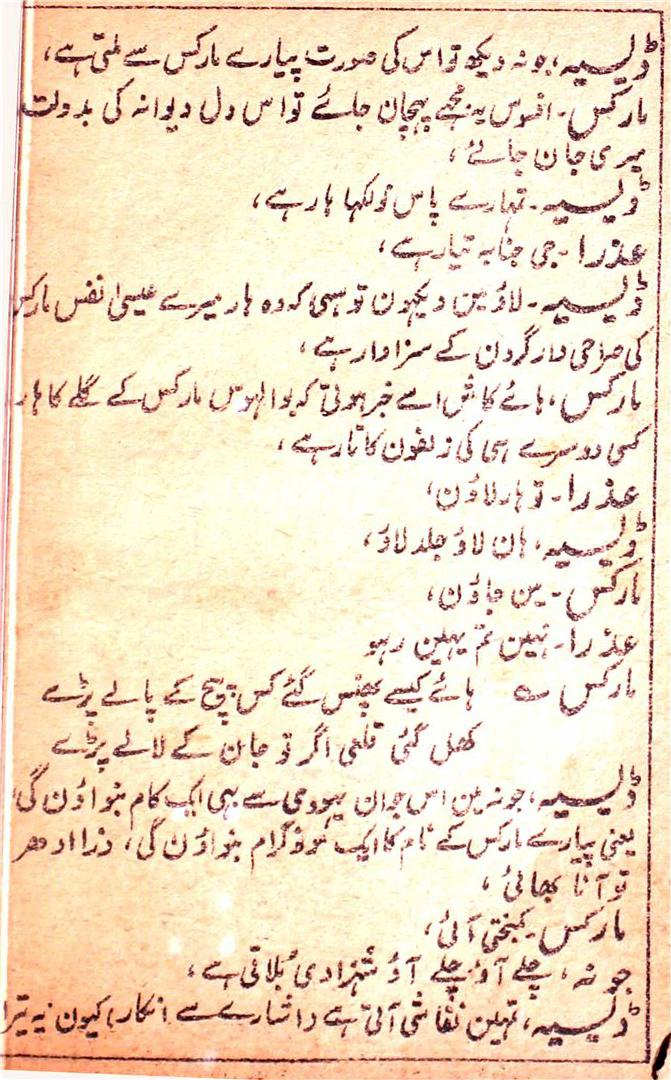 ڈیسیہ، جونہ دیکھ تو اس کی صورت پیارے مارکس سے ملتی ہے،
مارکس۔ افسوس یہ مجھے پہچان جائے تو اس دل دیوانہ کی بدولت
میری جان جائے،
ڈیسیہ۔ تمہارے پاس نولکہا ہار ہے،
عذرا۔ جی جنابہ تیار ہے،
ڈیسیہ۔ لاؤ مین دیکہون تو سہی کہ وہ ہار میرے عیسیٰ نفس مارکس
کی صراحی دار گردن کے سزاوار ہے،
مارکس، ہائے کاش اسے خبر ہوتی کہ بوالہوس مارکس کے گلے کا ہار
کسی دوسرے ہی کی زلفون کا تار ہے،
عذرا۔ تو ہار لاؤن،
ڈیسیہ، ہان لاؤ جلد لاؤ،
مارکس۔ مین جاؤن،
عذرا۔ نہین تم یہین رہو
مارکس ؎ ہائے کیسے پھنس گئے کس پیچ کے پالے پڑے
کھل گئی قلعی اگر تو جان کے لالے پڑے
ڈیسیہ، جونہ مین اس جوان یہودی سے بہی ایک کام بنواؤن گی،
یعنی پیارے مارکس کے نام کا ایک مونوگرام بنواؤن گی، ذرا ادھر
تو آنا بھائی،
مارکس۔ کمبختی آئی،
جونہ، چلے آؤ چلے آؤ شہزادی بُلاتی ہے،
ڈیسیہ، تمہین نقاشی آتی ہے (اشارے سے انکار) کیون نہ تیرا